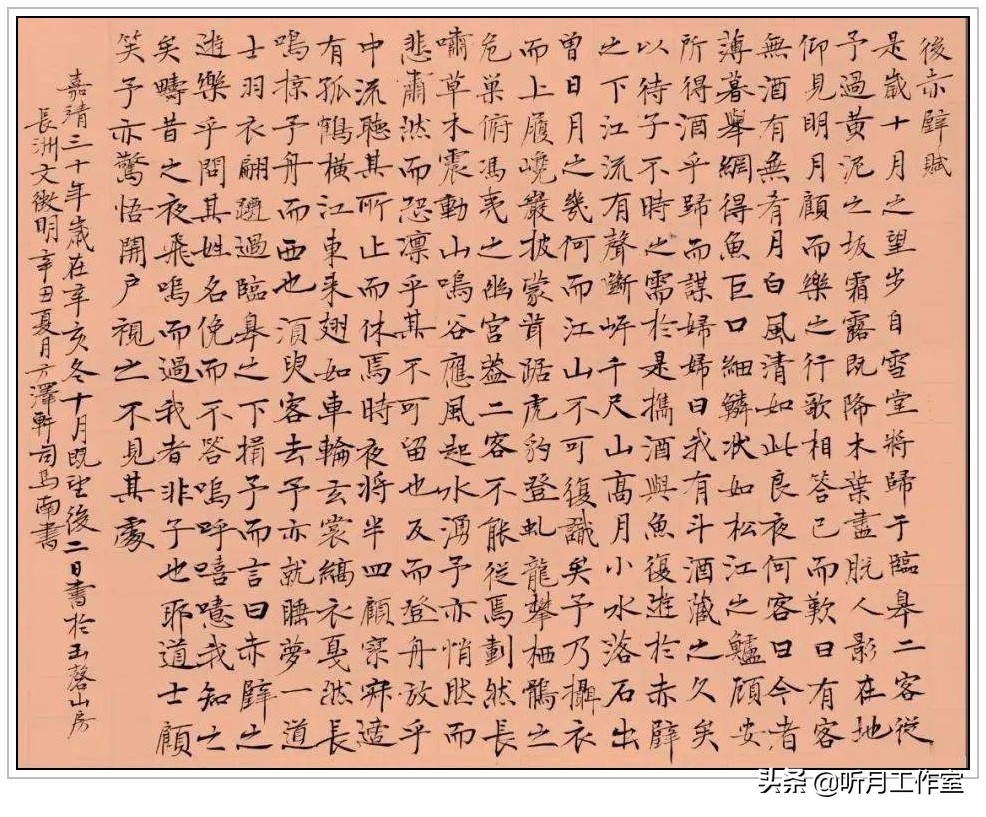 後赤壁賦
是歲十月之望步自雪堂將歸于臨皋二客從
予過黃泥之坂霜露既降木葉盡脫人影在地
仰見明月顧而樂之行歌相答已而歎曰有客
無酒有無肴月白風清如此良夜何客曰今者
薄暮舉網得魚巨口細鱗狀如松江之鱸顧安
所得酒乎歸而謀婦婦曰我有斗酒藏之久矣
以待子不時之需於是攜酒與魚復遊於赤壁
之下江流有聲斷岸千尺山高月小水落石出
曾日月之幾何而江山不可復識矣予乃攝衣
而上履巉巖披蒙茸踞虎豹登虬龍攀栖鶻之
危巢俯馮夷之幽宮蓋二客不能從焉劃然長
嘯草木震動山鳴谷應風起水湧予亦悄然而
悲肅然而恐凛乎其不可留也反而登舟放乎
中流聽其所止而休焉時夜將半四顧寥寂適
有孤鶴橫江東来翅如車輪玄裳縞衣戛然長
鳴掠予舟而西也須臾客去予亦就睡夢一道
士羽衣翩躚過臨皋之下揖予而言曰赤壁之
遊樂乎問其姓名俛而不答嗚呼嘻噫我知之
矣疇昔之夜飛鳴而過我者非子也耶道士顧
笑予亦驚悟開戶視之不見其處
嘉靖三十年歲在辛亥冬十月既望後二日書於玉磬山房
長洲文徵明辛丑夏月方澤軒司馬南書
头条 @听月工作室